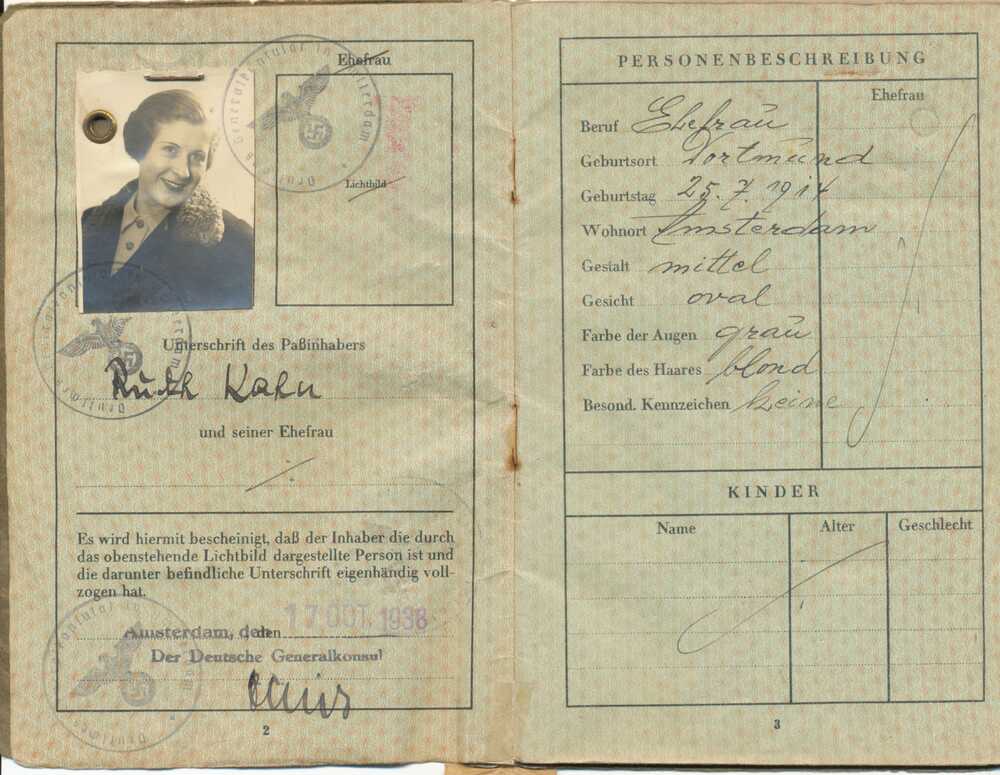 Ehefrau
Lichtbild
Unterschrift des Paßinhabers
Ruth Kahn
und seiner Ehefrau
Es wird hiermit bescheinigt, daß der Inhaber die durch
das obenstehende Lichtbild dargestellte Person ist und
die darunter befindliche Unterschrift eigenhändig voll-
zogen hat.
Amsterdam, den 17 OCT. 1938
Der Deutsche Generalkonsul
2
PERSONENBESCHREIBUNG
Ehefrau
Beruf Ehefrau
Geburtsort Dortmund
Geburtstag 25.7.1914
Wohnort Amsterdam
Gestalt mittel
Gesicht oval
Farbe der Augen grau
Farbe des Haares blond
Besond. Kennzeichen keine
KINDER
Name Alter Geschlecht
3